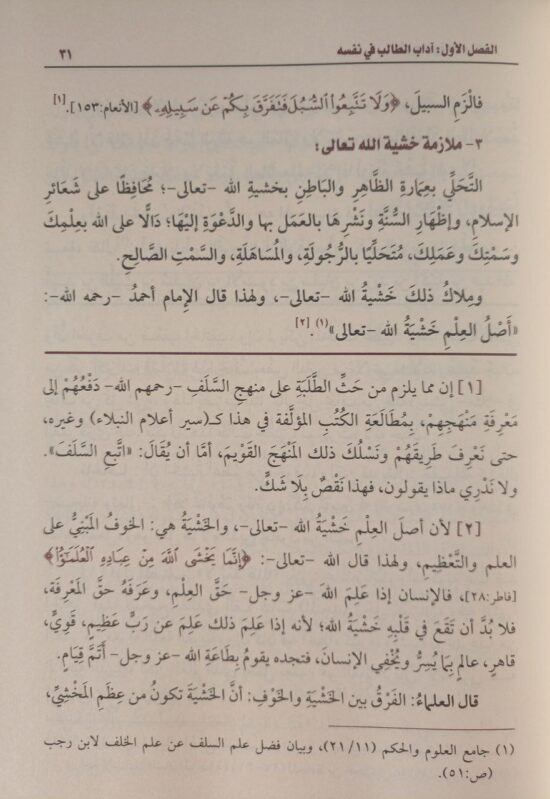 الفصل الأول: آداب الطالب في نفسه
٣١
فالْزَمِ السبيلَ، ﴿وَلَا تَتَّبِعُوا۟ ٱلسُّبُلَ فَتَفَرَّقَ بِكُمْ عَن سَبِيلِهِۦ﴾ [الأنعام:١٥٣].[١]
٣- ملازمة خشية الله تعالى:
التَّحَلِّي بعِمَارةِ الظَّاهِرِ والبَاطِنِ بخشيةِ الله -تعالى-؛ مُحَافِظًا على شَعَائرِ
الإسلامِ، وإظْهَارِ السُّنَّةِ ونَشْرِهَا بالعَمَلِ بها والدَّعْوَةِ إليْهَا؛ دَالًّا على الله بعِلْمِكَ
وسَمْتِكَ وعَمَلِكَ، مُتَحَلِّيًا بالرُّجُولَةِ، والمُسَاهَلَةِ، والسَّمْتِ الصَّالِحِ.
ومِلاكُ ذلكَ خَشْيةُ الله -تعالى-، ولهذا قال الإمام أحمدُ -رحمه الله-:
«أَصْلُ العِلْمِ خَشْيَةُ الله -تعالى»(١).[٢]
[١] إن مما يلزم من حَثِّ الطَّلَبَةِ على منهجِ السَّلَفِ -رحمهم الله- دَفْعُهُمْ إلى
مَعْرِفَةِ مَنْهَجِهِمْ، بِمُطَالَعَةِ الكُتُبِ المؤلَّفة في هذا كـ(سير أعلام النبلاء) وغيره،
حتى نَعْرِفَ طَرِيقَهُمْ ونَسْلُكَ ذلك المَنْهَجَ القَوِيمَ، أمَّا أن يُقَالَ: «اتَّبعِ السَّلَفَ».
ولا نَدْرِي ماذا يقولون، فهذا نَقْصٌ بِلَا شَكٍّ.
[٢] لأن أصلَ العِلْمِ خَشْيَةُ الله -تعالى-، والخَشْيَةُ هي: الخوفُ المَبْنِيُّ على
العلم والتَّعْظِيمِ، ولهذا قال الله -تعالى-: ﴿إِنَّمَا يَخْشَى ٱللَّهَ مِنْ عِبَادِهِ ٱلْعُلَمَـٰٓؤُا۟﴾
[فاطر:٢٨]، فالإنسان إذا عَلِمَ اللهَ -عز وجل- حَقَّ العِلْمِ، وعَرَفَهُ حقَّ المَعْرِفَة،
فلا بُدَّ أن تَقَعَ في قَلْبِهِ خَشْيَةُ الله؛ لأنه إذا عَلِمَ ذلك عَلِمَ عن رَبٍّ عَظِيمٍ، قَوِيٍّ،
قاهرٍ، عالمٍ بِمَا يُسِرُّ ويُخْفِي الإنسانَ، فتجده يقومُ بِطَاعَةِ الله -عز وجل- أَتَمَّ قِيَامٍ.
قال العلماءُ: الفَرْقُ بين الخَشْيَةِ والخَوْفِ: أنَّ الخَشْيَةَ تكونُ من عِظَمِ المَخْشِيِّ،
(١) جامع العلوم والحكم (٢١/١١)، وبيان فضل علم السلف عن علم الخلف لابن رجب
(ص:٥١).